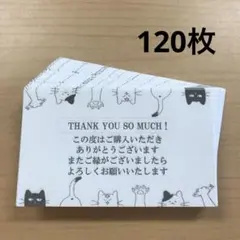 120枚
THANK YOU SO MUCH!
この度はご購入いただき
ありがとうございます
またご縁がございましたら
よろしくお願いいたします